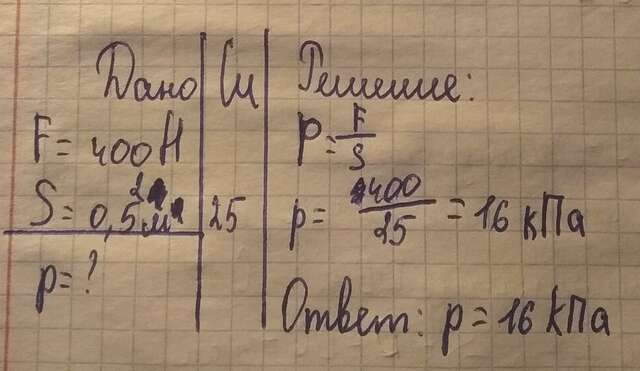 Дано
F = 400 Н
S = 0,5 м²
p = ?
СИ
25
Решение:
p = F/S
p = 400/25 = 16 кПа
Ответ: p = 16 кПа